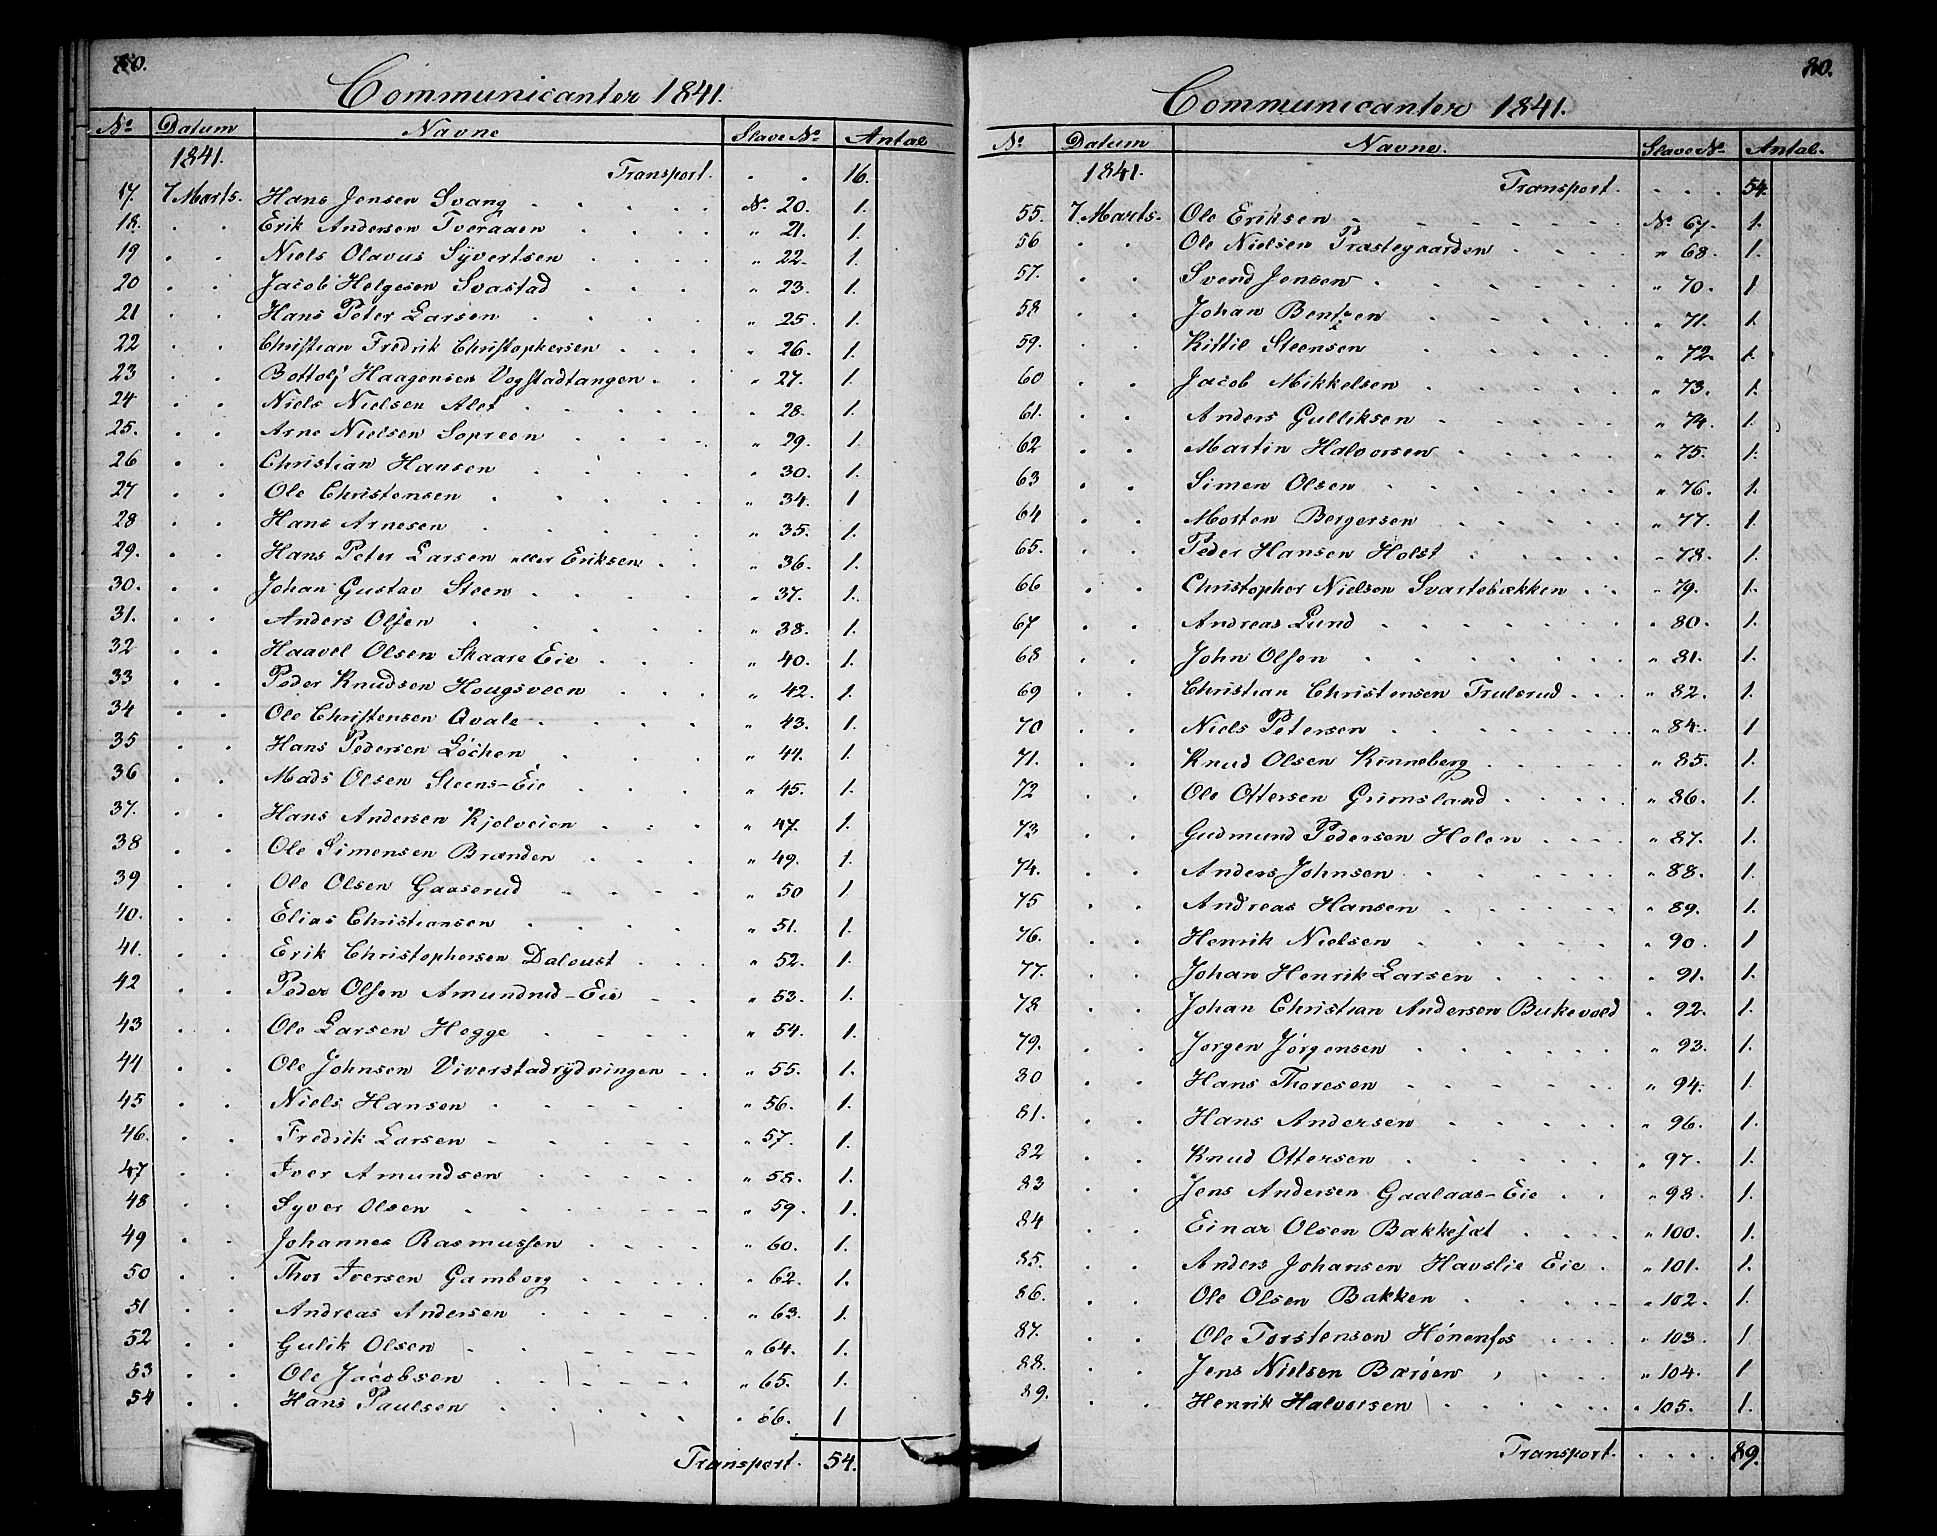 80.
Communicanter 1841.
No Datum Navne Slave No Antal
1841. Transport. . . 16.
17. 7 Marts. Hans Jensen Svang . . . . . No. 20. 1.
18. . . Erik Andersen Tveraaen . . . . " 21. 1.
19 . . Niels Olavus Syvertsen . . . . " 22. 1.
20 . . Jacob Helgesen Svastad . . . " 23. 1.
21 . . Hans Peter Larsen . . . . " 25. 1.
22 . . Christian Fredrik Christophersen . . . " 26. 1.
23 . . Bottolf Haagensen Vogstadtangen . . " 27. 1.
24 . . Niels Nielsen Alet . . . . . " 28. 1.
25. . . Arne Nielsen Sopreen . . . . " 29. 1.
26 . . Christian Hansen . . . . " 30. 1.
27 . . Ole Christensen . . . . . " 34. 1
28 . . Hans Arnesen . . . . " 35. 1.
29. . . Hans Peter Larsen eller Eriksen . . " 36. 1.
30. . . Johan Gustav Steen . . . . " 37. 1.
31. . . Anders Olsen . . . . . " 38. 1.
32 . . Haavel Olsen Skaare Eie . . . " 40. 1.
33 . . Peder Knudsen Hougsveen . . . " 42. 1.
34 . . Ole Christensen Qvale . . . . " 43. 1.
35 . . Hans Pedersen Löchen . . . " 44. 1.
36 . . Mads Olsen Steens-Eie . . . " 45. 1.
37. . . Hans Andersen Kjolveien . . . " 47. 1.
38 . . Ole Simensen Brænden . . . " 49. 1.
39 . . Ole Olsen Gaaserud . . . . " 50 1
40. . . Elias Christiansen . . . . " 51. 1.
41. . . Erik Christophersen Daloust . . . " 52. 1.
42 . . Peder Olsen Amundrud-Eie . . " 53. 1.
43 . . Ole Larsen Hogge . . . . " 54. 1.
44 . . Ole Johnsen Viverstadrydningen . . " 55. 1.
45 . . Niels Hansen . . . . . " 56. 1.
46. . . Fredrik Larsen . . . . . " 57. 1.
47 . . Iver Amundsen . . . . . " 58. 1.
48 . . Syver Olsen . . . . . . " 59. 1.
49 . . Johannes Rasmussen . . . . " 60. 1.
50 . . Thor Iversen Gamborg . . . . " 62. 1.
51 . . Andreas Andersen . . . . " 63. 1.
52 . . Gulik Olsen . . . . . " 64. 1.
53 . . Ole Jacobsen . . . . . " 65. 1.
54 . . Hans Paulsen . . . . . . " 66. 1
Transport. 54.
80.
Communicanter 1841.
No Datum Navne. Slave No Antal.
1841. Transport. . . . 54.
55. 7 Marts. Ole Eriksen . . . . . . . No. 67. 1.
56 . . Ole Nielsen Præstegaarden . . . . " 68. 1.
57. . . Svend Jensen . . . . . . " 70. 1
58 . . Johan Bentzen . . . . . " 71. 1.
59. . . Kittil Steensen . . . . . " 72. 1.
60 . . Jacob Mikkelsen . . . . . " 73. 1.
61. . . Anders Gulliksen . . . . . " 74. 1.
62 . . Martin Halvorsen . . . . . " 75. 1.
63 . . Simen Olsen . . . . . . " 76. 1.
64 . . Morten Bergersen . . . . . " 77. 1.
65. . . Peder Hansen Holst . . . . . " 78. 1.
66 . . Christopher Nielsen Svartebækken . . " 79. 1.
67 . . Andreas Lund . . . . . . . " 80. 1.
68 . . John Olsen . . . . . . . " 81. 1.
69 . . Christian Christensen Trulsrud . . . " 82. 1.
70 . . Niels Petersen . . . . . . . " 84. 1
71. . . Knud Olsen Rønneberg . . . . . " 85. 1.
72 . . Ole Ottersen Grimsland . . . . . " 86. 1.
73 . . Gudmund Pedersen Holen . . . . " 87. 1.
74. . . Anders Johnsen . . . . . . " 88. 1.
75 . . Andreas Hansen . . . . . . " 89. 1.
76. . . Henrik Nielsen . . . . . . " 90. 1
77. . . Johan Henrik Larsen . . . . " 91. 1.
78 . . Johan Christian Andersen Bukevold . " 92. 1.
79. . . Jørgen Jørgensen . . . . . . " 93. 1.
80 . . Hans Thoresen . . . . . . " 94. 1
81. . . Hans Andersen . . . . . " 96. 1.
82 . . Knud Ottersen . . . . . " 97. 1.
83 . . Jens Andersen Gaalaas-Eie . . " 98. 1.
84 . . Einar Olsen Bakkesæt . . . . " 100. 1.
85. . . Anders Johansen Havslie Eie . " 101. 1.
86. . . Ole Olsen Bakken . . . . . " 102. 1.
87. . . Ole Torstensen Hønenfos . . . " 103. 1
88. . . Jens Nielsen Barøen . . . . " 104. 1
89. . . Henrik Halvorsen . . . . . . " 105. 1.
Transport. . . . . 89.